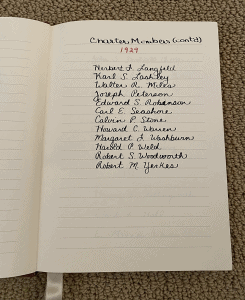 Charter Members (cont'd)
1929
Herbert S. Langfeld
Karl S. Lashley
Walter R. Miles
Joseph Peterson
Edward S. Robinson
Carl E. Seashore
Calvin P. Stone
Howard C. Warren
Margaret F. Washburn
Harold P. Weld
Robert S. Woodworth
Robert M. Yerkes